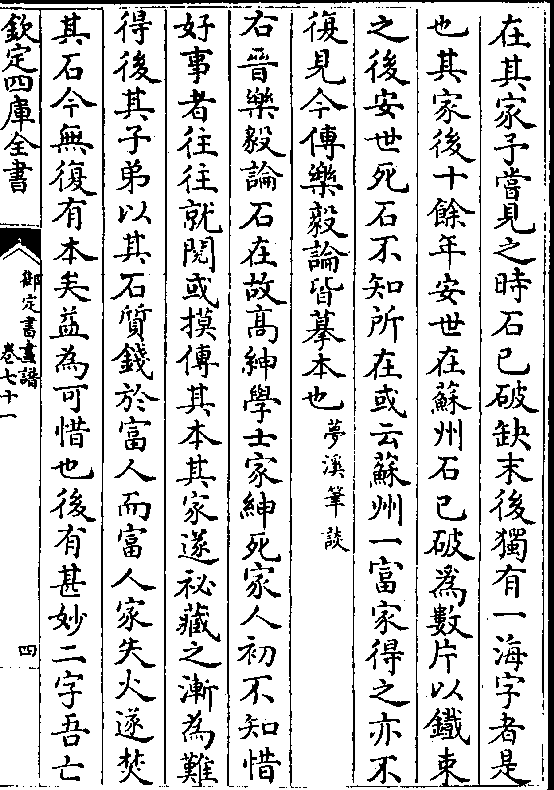 在其家予嘗見之時石已破缺末後獨有一海字者是
也其家後十餘年安世在蘇州石已破為數片以鐵束
之後安世死石不知所在或云蘇州一富家得之亦不
復見今傳樂毅論皆摹本也夢溪筆談
右晉樂毅論石在故高紳學士家紳死家人初不知惜
好事者往往就閱或摸傳其本其家遂祕藏之漸為難
得後其子弟以其石質錢於富人而富人家失火遂焚
其石今無復有本矣益為可惜也後有甚妙二字吾亡
欽定四庫全書
御定書畫譜
卷七十一
四